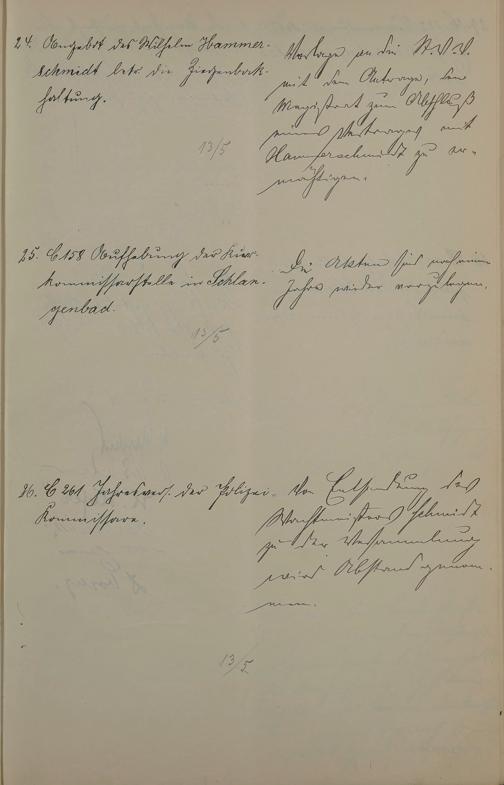 24. Angebot des Wilhelm Hammer-
schmidt betr. die Ziegenbock-
haltung.
13/5
Vorlage an die St.V.V.
mit dem Antrage, den
Magistrat zum Abschluß
eines Vertrages mit
Hammerschmidt zu er-
mächtigen.
25. C 158 Aufhebung der Kur-
kommissarstelle in Schlan-
genbad.
13/5
Die Akten sind nach einem
Jahre wieder vorzulegen.
26. C 261 Jahresvers. der Polizei-
Kommissare.
Von Entsendung des
Wachtmeisters Schmidt
zu der Versammlung
wird Abstand genom-
men.
13/5